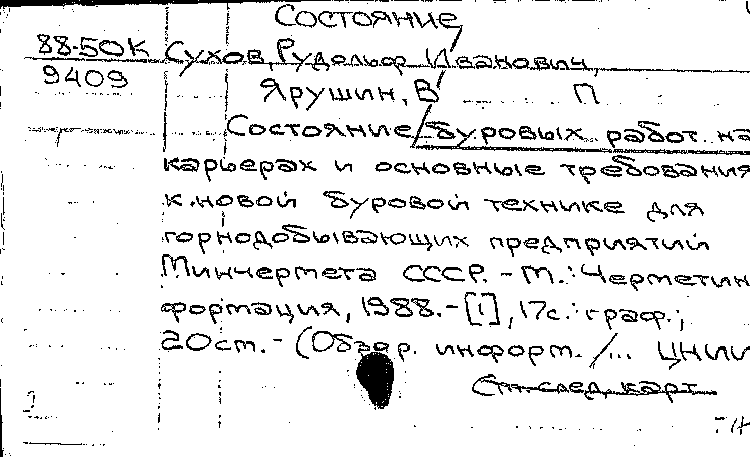 Состояние
88-50К Сухов, Рудольф Иванович,
9409
Ярушин, В П
Состояние буровых работ на
карьерах и основные требования
к новой буровой технике для
горнодобывающих предприятий
Минчермета СССР. - М.: Черметин
формация, 1988. - [1], 17с.: граф.;
20см. - (Обзор. информ. /... ЦНИИ
См. след. карт